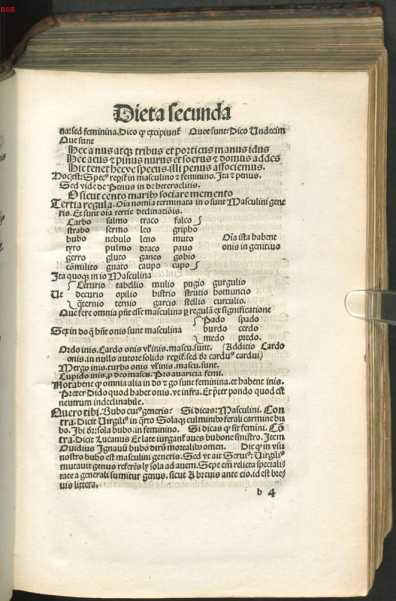 Dieta secunda
na: sed feminina. Dico qȝ excipiunt̃ Quot sunt: Dico Undecim
Que sunt
Hec anus atqȝ tribus et porticus manus idus
Hec acus ⁊ pinus nurus et socrus ⁊ domus addes
His tenet hec vel specus illi penus associemus.
Hoc est: Spec⁹ regit̃ in masculino ⁊ feminino. Ita ⁊ penus.
Sed vide de Penus in de heteroclitis.
O sicut cento marib⁹ sociare memento
Tertia regula. Oĩa nomĩa terminata in o sunt Masculini gene
ris. Et sunt oĩa tertie declinatiõis.
Carbo salmo traco falco
strabo sermo leo gripho
bubo nebulo leno muto Oĩa ista habent
tyro pulmo draco pauo onis in genitiuo
gerro gluto ganeo gobio
comilito gnato caupo capo
Ita quoqȝ in io Masculina
Cerurio tabellio mulio pugio gurgulio
Ut decurio opilio histrio strutio homuncio
q̃ternio ternio garcio stellio curculio.
Que fere omnia pñt esse masculina ꝑ regulã ex significatione
Pado spado
Sed in do q̃ hñt onis sunt masculina burdo cerdo
medo predo.
Ordo inis. Cardo onis vl' inis. mascu. sunt. Additio Cardo
onis. in nullo autore solido
Mergo inis. turbo onis vl' inis. mascu. sunt.
Cupido inis. ꝓ deo mascu. Pro auaricia femi.
Hoc habent omnia alia in do ⁊ go sunt feminina. et habent inis.
Preter Dido quod habet onis. vt infra. Et preter pondo quod est
neutrum indeclinabile.
Quero tibi. Bubo cuius generis Si dicas: Masculini. Con
tra. Dicit Virgili⁹ in
bo. Ibi sola bubo. in feminino. Si dicas qȝ sit femini. Cõ
tra. Dicit Lucanus Et late iurgant aues bubone sinistro. Item
Ouidius Ignauus bubo dirũ mortalib⁹ omen. Dic qȝ in vsu
nostro bubo est masculini generis. Sed vt ait Serui⁹: Virgili⁹
mutauit genus referẽs ly sola ad auem. Sepe eñ relicta speciali
tate a generali sumitur genus. sicut
uis littera.
b 4